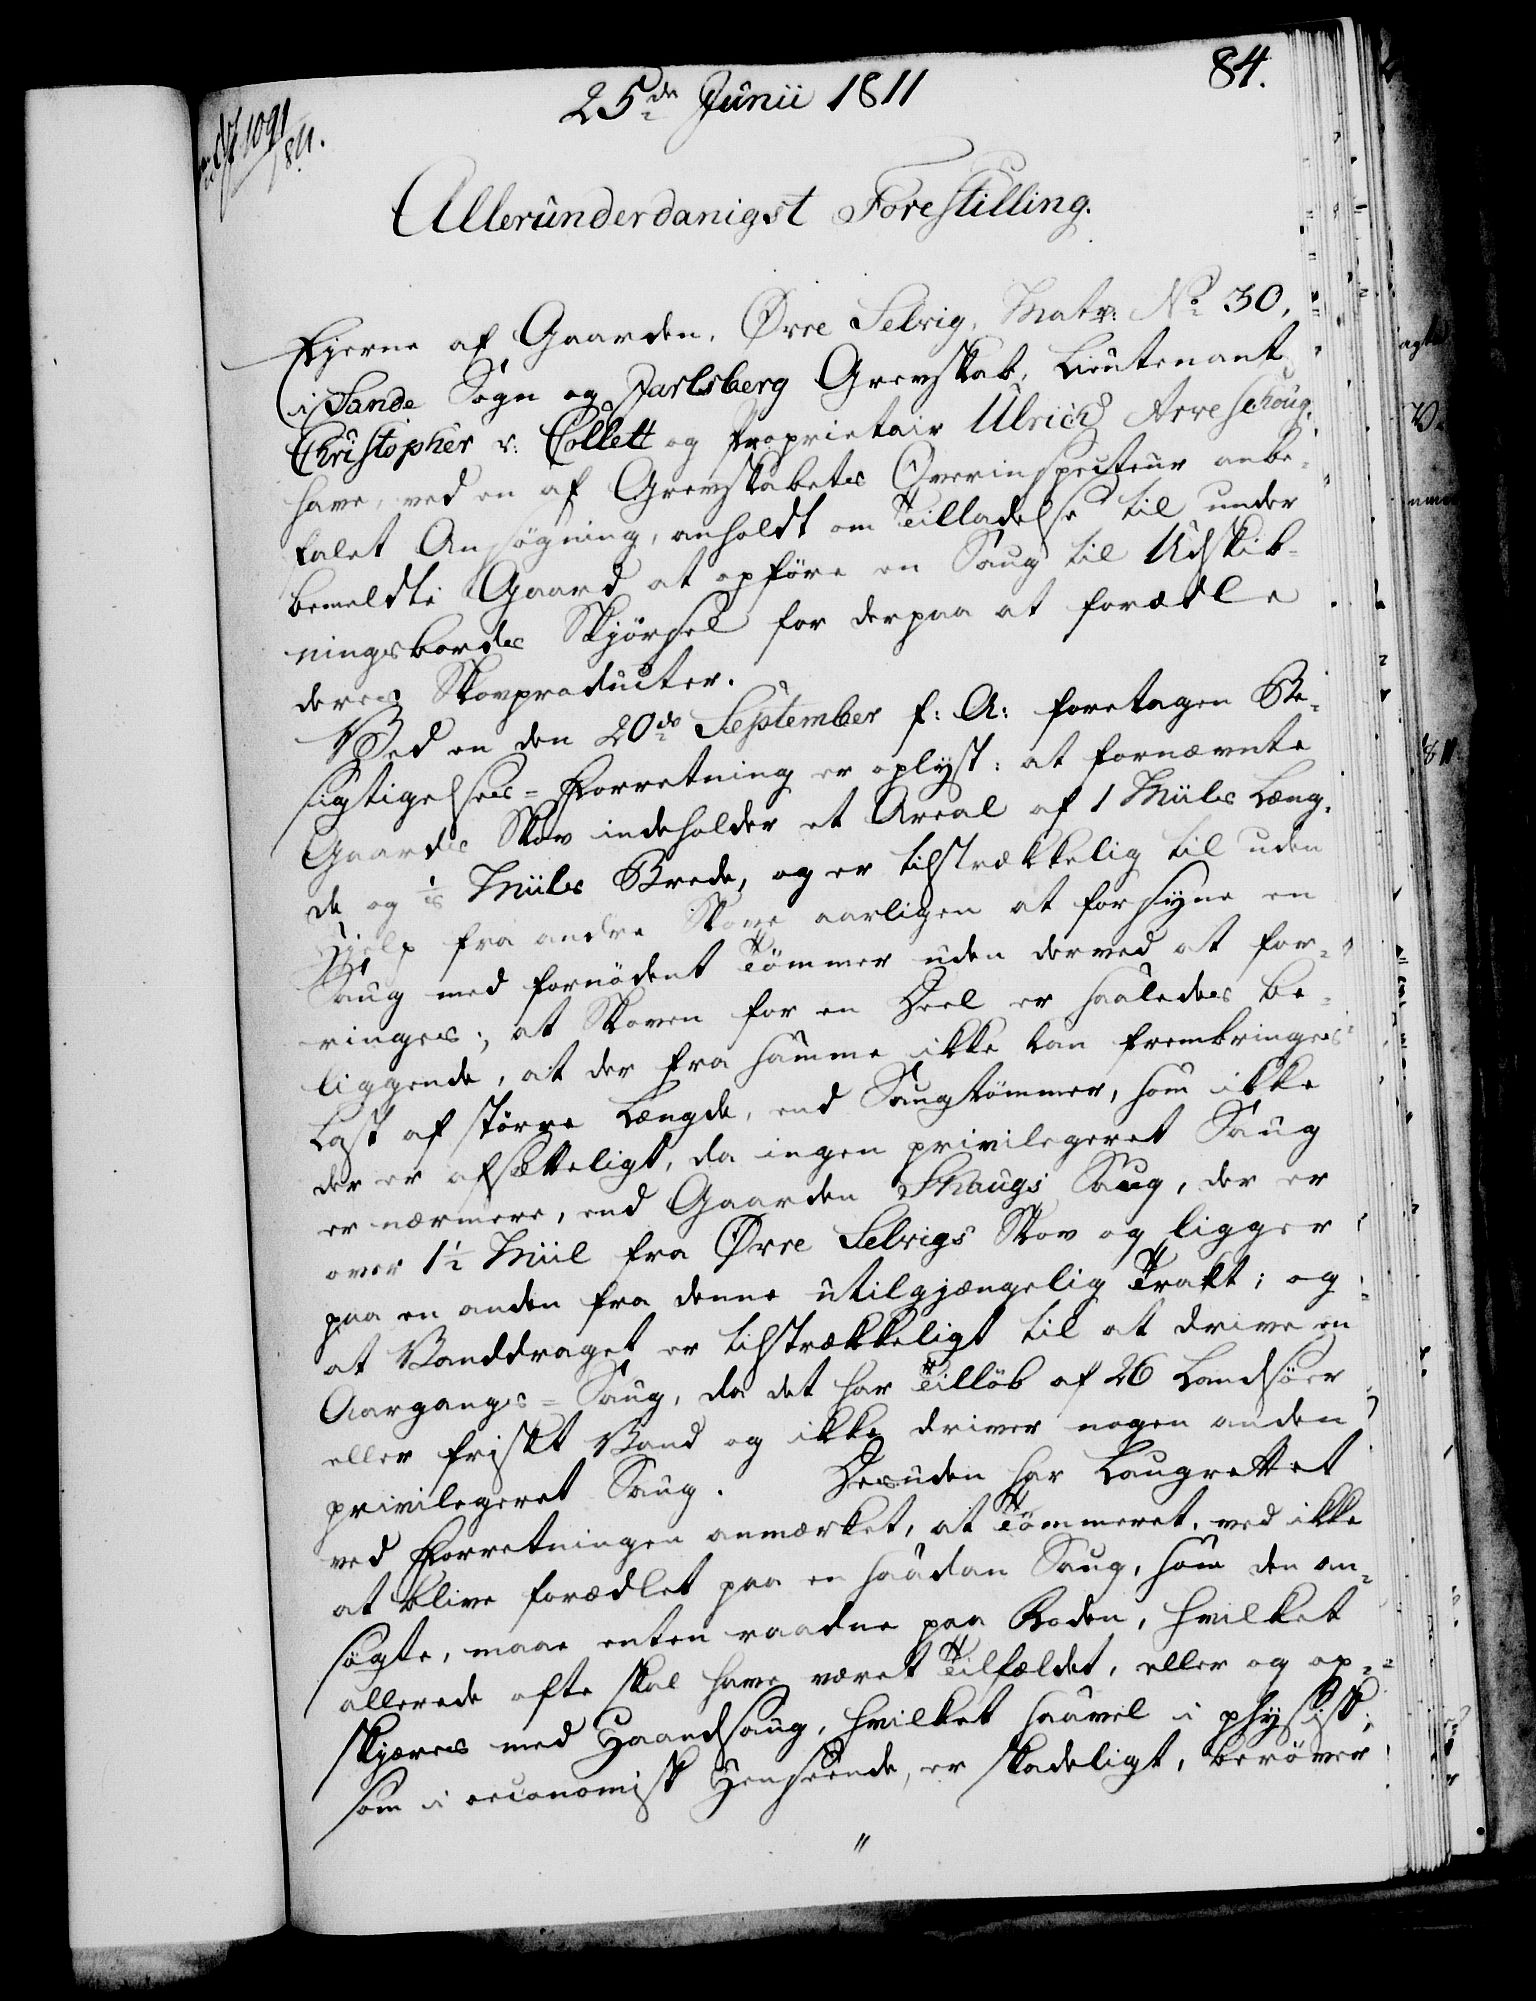 25de Junii 1811
84.
1091
1811.
Allerûnderdanigst Forestilling.
Ejerne af Gaarden, Øvre Selvig, Matr: No 30,
i Sande Sogn og Jarlsberg Grevskab, Lieutenant
Christopher v: Collett og Proprietair Ulrich Arveschoug
have, ved en af Grevskabets Overinspecteur anbe-
falet Ansøgning, anholdt om Tilladelse til under
bemeldte Gaard at opføre en Saug til Udskib-
ningsbordes Skjørsel for derpaa at forædle
deres Skovproducter.
Ved en den 20de September f: A: foretagen Be-
sigtigelses-Forretning er oplyst: at fornævnte
Gaards Skov indeholder et Areal af 1 Miils Læng-
de og Miils Brede, og er tilstrækkelig til uden
Hjelp fra andre Skove aarligen at forsyne en
Saug med fornødent Tömmer uden derved at for-
ringes; at Skoven for en Deel er saaledes be-
liggende, at der fra samme ikke kan frembringes
Last af større Længde, end Saugtömmer, som ikke
der er afsætteligt, da ingen privilegeret Saug
er nærmere, end Gaarden Skaugs Saug, der er
over 1½ Miil fra Øvre Selvigs Skov og ligger
paa en anden fra denne utilgjængelig Trakt; og
at Vanddraget er tilstrækkeligt til at drive en
Aargangs-Saug, da det har Tilløb af 26 Landsøer
eller friskt Vand og ikke driver nogen anden
privilegeret Saug. Desuden har Laugrettet
ved Forretningen anmærket, at Tömmeret, ved ikke
at blive forædlet paa en saadan Saug, som den an-
søgte, maae enten raadne paa Roden, hvilket
allerede ofte skal have været Tilfældet, eller og op-
skjæres med Haandsaug, hvilket saavel i physisk,
som i oeconomisk Henseende, er skadeligt, berøver
"